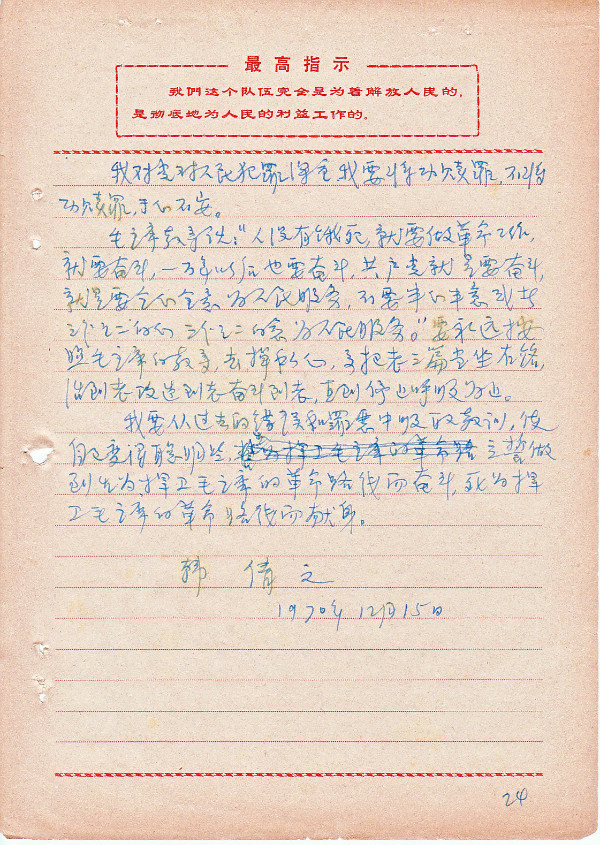 最高指示
我們这个队伍完全是为着解放人民的，
是彻底地为人民的利益工作的。
我对党对人民犯罪深重我要将功赎罪，不将
功赎罪，于心不安。
毛主席教导说：“人没有饿死，就要做革命工作，
就要奋斗，一万年以后也要奋斗，共产党就是要奋斗，
就是要全心全意为人民服务，不要半心半意或者
三分之二的心三分之二的意为人民服务。”要永远按
照毛主席的教导，去掉私心，要把老三篇当坐右铭，
活到老改造到老奋斗到老，直到停止呼吸为止。
我要从过去的错误和罪恶中吸取教训，使
自己变得聪明些，为捍卫毛主席的革命路 立誓做
到生为捍卫毛主席的革命路线而奋斗，死为捍
卫毛主席的革命路线而献身。
韩倩之
1970年12月15日
24